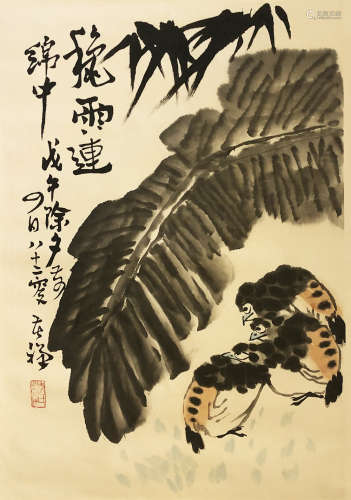 穐雨連
綿中
戊午除夕前
四日八十二叟苦禪